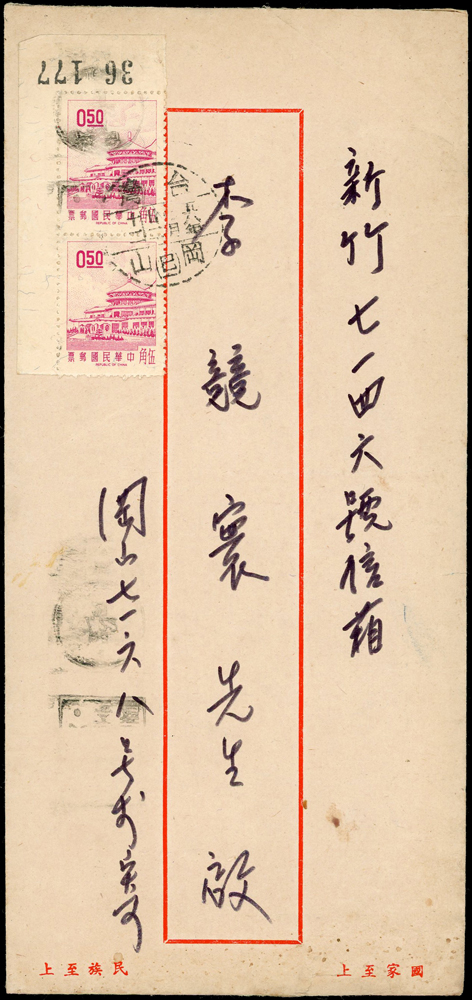 新竹七一四六號信箱
李競寰先生啟
岡山七一六八号
36 177
0.50
伍角 中華民國郵票
REPUBLIC OF CHINA
0.50
伍角 中華民國郵票
REPUBLIC OF CHINA
台灣
岡山
國家至上
民族至上